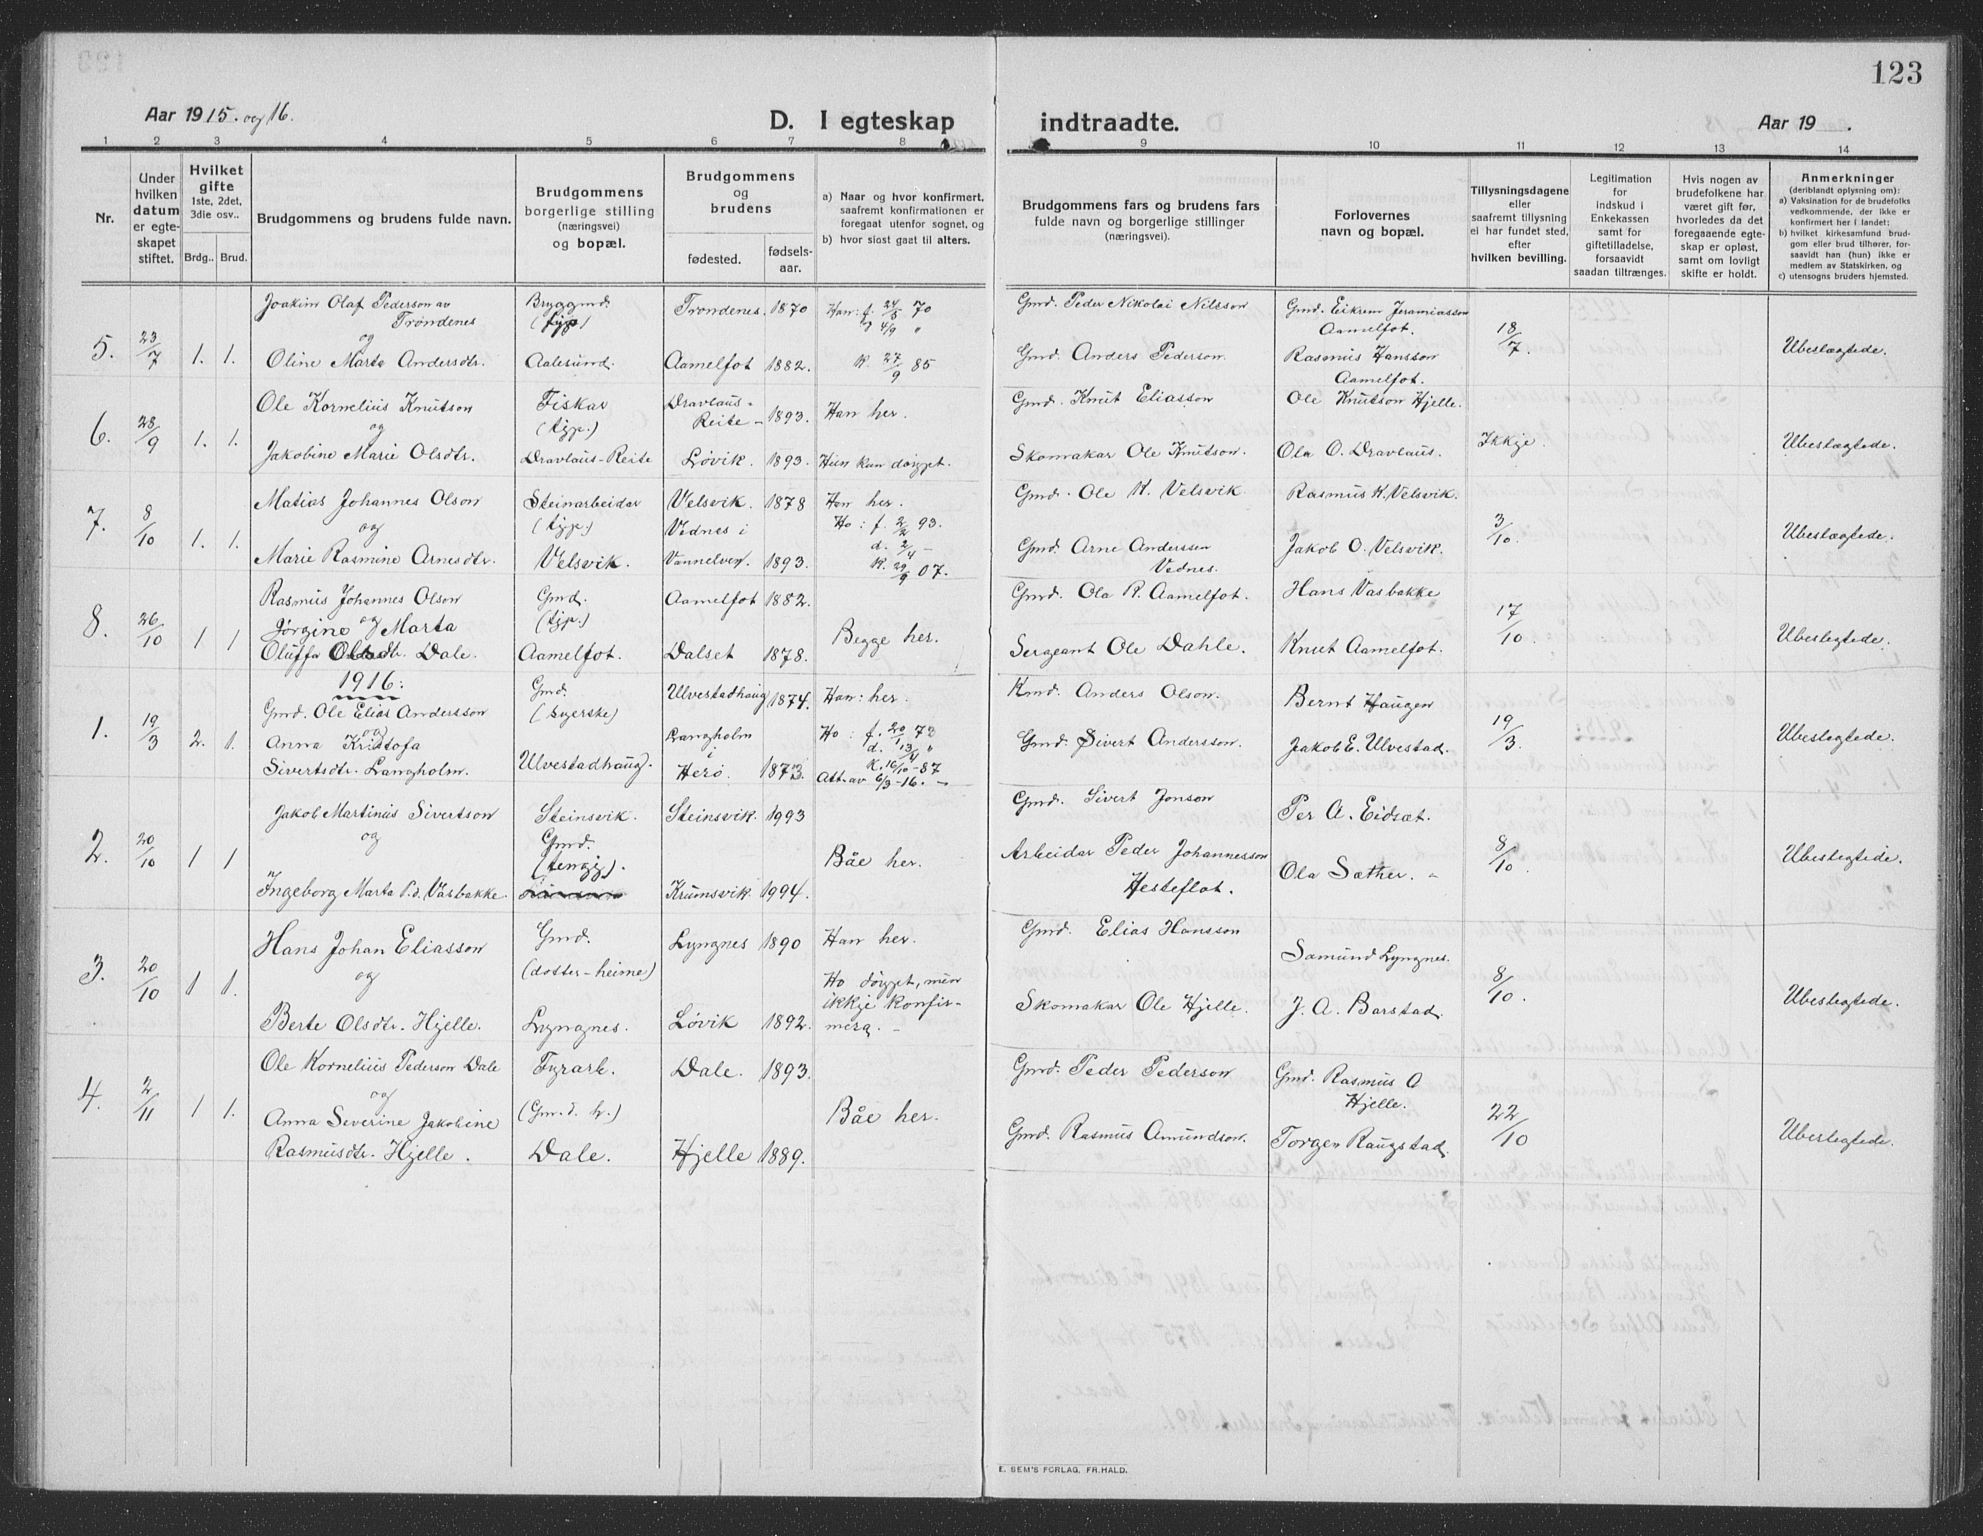 123
Aar 1915. og 16.
D. I egteskap indtraadte.
Aar 19 .
1 2 3 4 5 6 7 8 9 10 11 12 13 14
Nr.
Under hvilken datum er egteskapet stiftet.
Hvilket gifte 1ste, 2det, 3die osv..
Brdg.. Brud.
Brudgommens og brudens fulde navn.
Brudgommens borgerlige stilling (næringsvei) og bopæl.
Brudgommens og brudens
fødested.
fødsels-aar.
a) Naar og hvor konfirmert, saafremt konfirmationen er foregaat utenfor sognet, og
b) hvor sidst gaat til alters.
Brudgommens fars og brudens fars fulde navn og borgerlige stillinger (næringsvei).
Forlovernes navn og bopæl.
Tillysningsdagene eller saafremt tillysning ei har fundet sted, efter hvilken bevilling.
Legitimation for indskud i Enkekassen samt for giftetilladelse, forsaavidt saadan tiltrænges.
Hvis nogen av brudefolkene har været gift før, hvorledes da det foregaaende egteskap er opløst, samt om lovligt skifte er holdt.
Anmerkninger (deriblandt oplysning om):
a) Vaksination for de brudefolks vedkommende, der ikke er konfirmert her i landet;
b) hvilket kirkesamfund brudgom eller brud tilhører, forsaavidt han (hun) ikke er medlem av Statskirken, og
c) utensogns bruders hjemsted.
5. 23/7 1. 1.
Joakim Olaf Pederson av Trondenes
og
Oline Marta Andersdtr.
Bryggmd.
Aalesund.
Trondenes. 1870
Aamelfot 1882.
Han: f. 24/5 70
4/9 "
K. 27/9 85
Gmd. Peder Nikolai Nilsson
Gmd. Anders Pederson.
Gmd. Eikrem Jeramiasson Aamelfot.
Rasmus Hansson Aamelfot.
18/7.
Ubeslægtede.
6. 28/9 1. 1.
Ole Kornelius Knutson
og
Jakobine Marie Olsdtr.
Fiskar
Dravlaus-Reite
Dravlaus-Reite - 1893.
Løvik. 1893.
Han her.
Hun kun døypt.
Gmd. Knut Eliasson
Skomakar Ole Knutson.
Ole Knutson Hjelle.
Ola O. Dravlaus.
Ikkje.
Ubeslægtede.
7. 8/10 1. 1.
Matias Johannes Olson
og
Marie Rasmine Arnesdtr.
Steinarbeidar
Velsvik.
Velsvik 1878
Vednes i Vannelven. 1893.
Han her.
Ho: f. 2/2 93.
d. 2/4 -
K. 29/9 07.
Gmd. Ole K. Velsvik.
Gmd. Arne Anderssen Vednes.
Rasmus K. Velsvik.
Jakob O. Velsvik.
3/10.
Ubeslægtede.
8. 26/10 1 1
Rasmus Johannes Olson
og
Jørgine Marta
Oluffa Olsdtr. Dale.
Gmd.
Aamelfot.
Aamelfot 1882.
Dalset 1878.
Begge her.
Gmd. Ola R. Aamelfot.
Sergeant Ole Dahle.
Hans Vasbakke
Knut Aamelfot.
17/10.
Ubeslegtede.
1916:
1. 19/3 2. 1.
Gmd. Ole Elias Andersson
og
Anna Kristofa
Sivertsdtr. Langholm.
Gmd.
Ulvestadhaug.
Ulvestadhaug 1874.
Langholm i Herø. 1873.
Han: her.
Ho: f. 20/1 73
d. 13/4 "
K. 16/10 - 87
Att. av 6/3 - 16. -
Kmd. Anders Olson.
Gmd. Sivert Andersson.
Bernt Haugen
Jakob E. Ulvestad.
19/3.
Ubeslegtede.
2. 20/10 1 1
Jakob Martinus Sivertson
og
Ingeborg Marta P.d. Vasbakke.
Steinsvik.
Gmd.
Steinsvik. 1993
Krumsvik. 1994.
Båe her.
Gmd. Sivert Jonson
Arbeidar Peder Johannesson Hesteflot.
Per A. Eidset.
Ola Sæther. -
8/10.
Ubeslegtede.
3. 20/10 1 1.
Hans Johan Eliasson
og
Berte Olsdtr. Hjelle.
Gmd.
(dotter-heime)
Lyngnes.
Lyngnes 1890
Løvik 1892.
Han her.
Ho døypt, men ikkje konfirmera. -
Gmd. Elias Hansson
Skomakar Ole Hjelle.
Samund Lyngnes.
J. A. Barstad.
8/10.
Ubeslegtede.
4. 2/11 1 1.
Ole Kornelius Pederson Dale
og
Anna Severine Jakobine
Rasmusdtr. Hjelle.
Fyrarb.
Dale.
Dale. 1893.
Hjelle 1889.
Båe her.
Gmd. Peder Pederson
Gmd. Rasmus Amundson.
Gmd. Rasmus O Hjelle.
Torger Raugstad.
22/10
Ubeslegtede.
E. SEM'S FORLAG, FR.HALD.